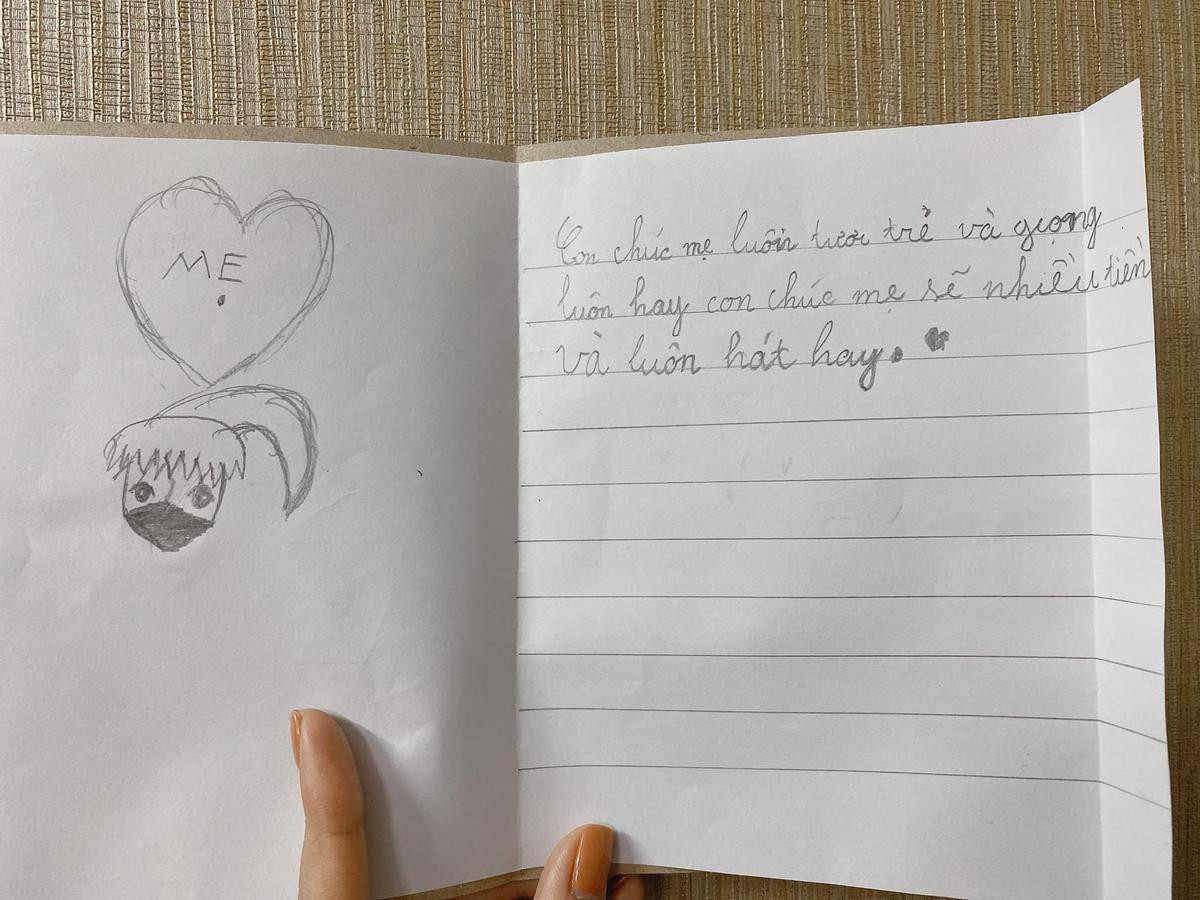 MẸ
Con chúc mẹ luôn tươi trẻ và giọng
luôn hay con chúc mẹ sẽ nhiều tiền
và luôn hát hay.